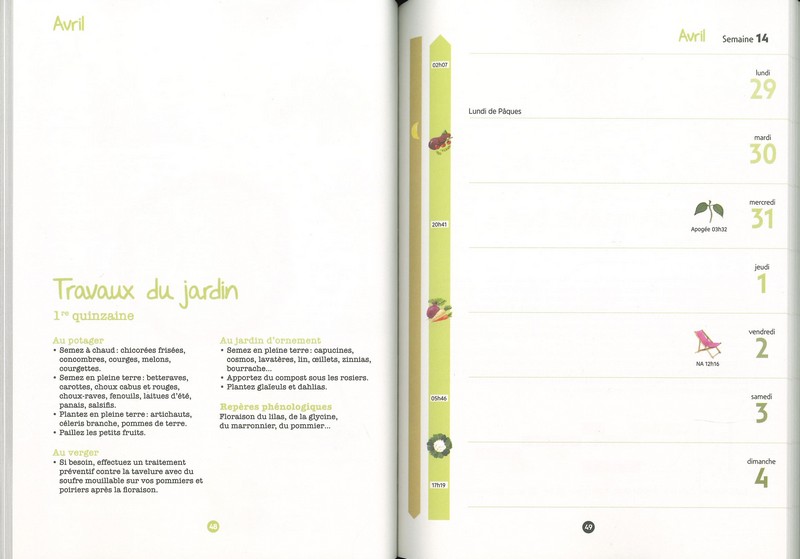 Avril
Travaux du jardin
1re quinzaine
Au potager
• Semez à chaud : chicorées frisées,
concombres, courges, melons,
courgettes.
• Semez en pleine terre : betteraves,
carottes, choux cabus et rouges,
choux-raves, fenouils, laitues d'été,
panais, salsifis.
• Plantez en pleine terre : artichauts,
céleris branche, pommes de terre.
• Paillez les petits fruits.
Au verger
• Si besoin, effectuez un traitement
préventif contre la tavelure avec du
soufre mouillable sur vos pommiers et
poiriers après la floraison.
Au jardin d'ornement
• Semez en pleine terre : capucines,
cosmos, lavatères, lin, œillets, zinnias,
bourrache...
• Apportez du compost sous les rosiers.
• Plantez glaïeuls et dahlias.
Repères phénologiques
Floraison du lilas, de la glycine,
du marronnier, du pommier...
48
Avril Semaine 14
02h07
lundi
29
Lundi de Pâques
mardi
30
20h41
mercredi
31
Apogée 03h32
jeudi
1
vendredi
2
NA 12h16
05h46
samedi
3
dimanche
4
17h19
49